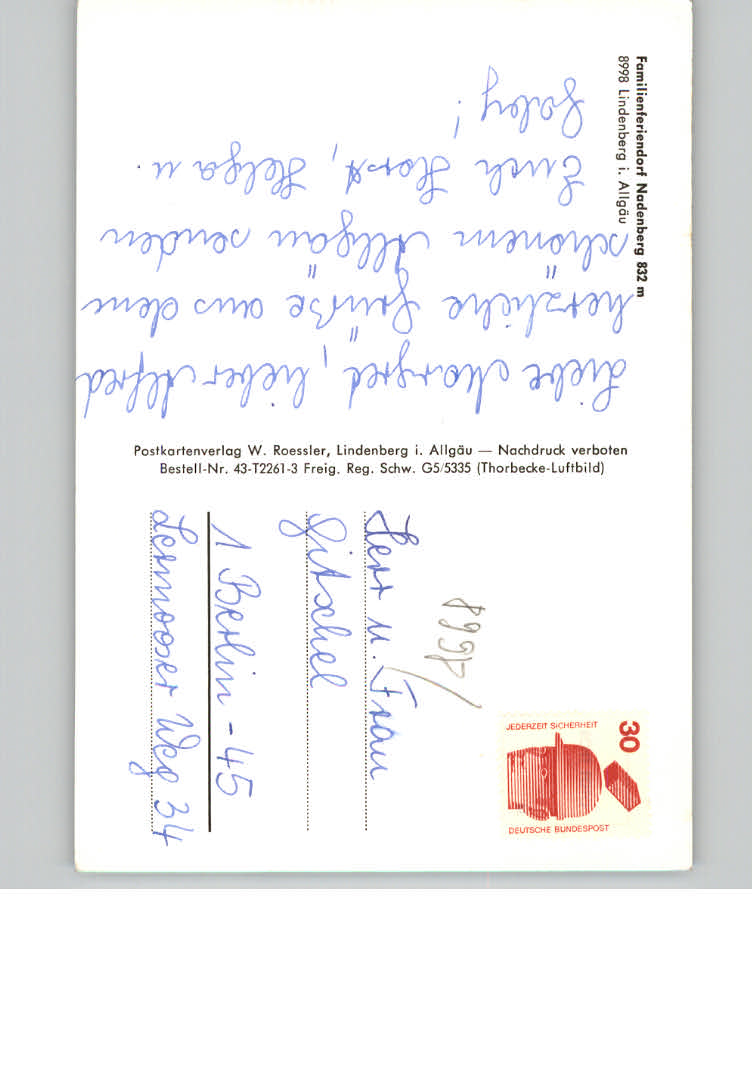 Familienferiendorf Nadenberg 832 m
8998 Lindenberg i. Allgäu
Liebe Margret, lieber Alfred
herzliche Grüße aus dem
schönem Allgäu senden
Euch Horst, Helga u.
Gaby!
Postkartenverlag W. Roessler, Lindenberg i. Allgäu — Nachdruck verboten
Bestell-Nr. 43-T2261-3 Freig. Reg. Schw. G5/5335 (Thorbecke-Luftbild)
8998/
30
JEDERZEIT SICHERHEIT
DEUTSCHE BUNDESPOST
Herr u. Frau
Gitschel
1 Berlin - 45
Lermooser Weg 34